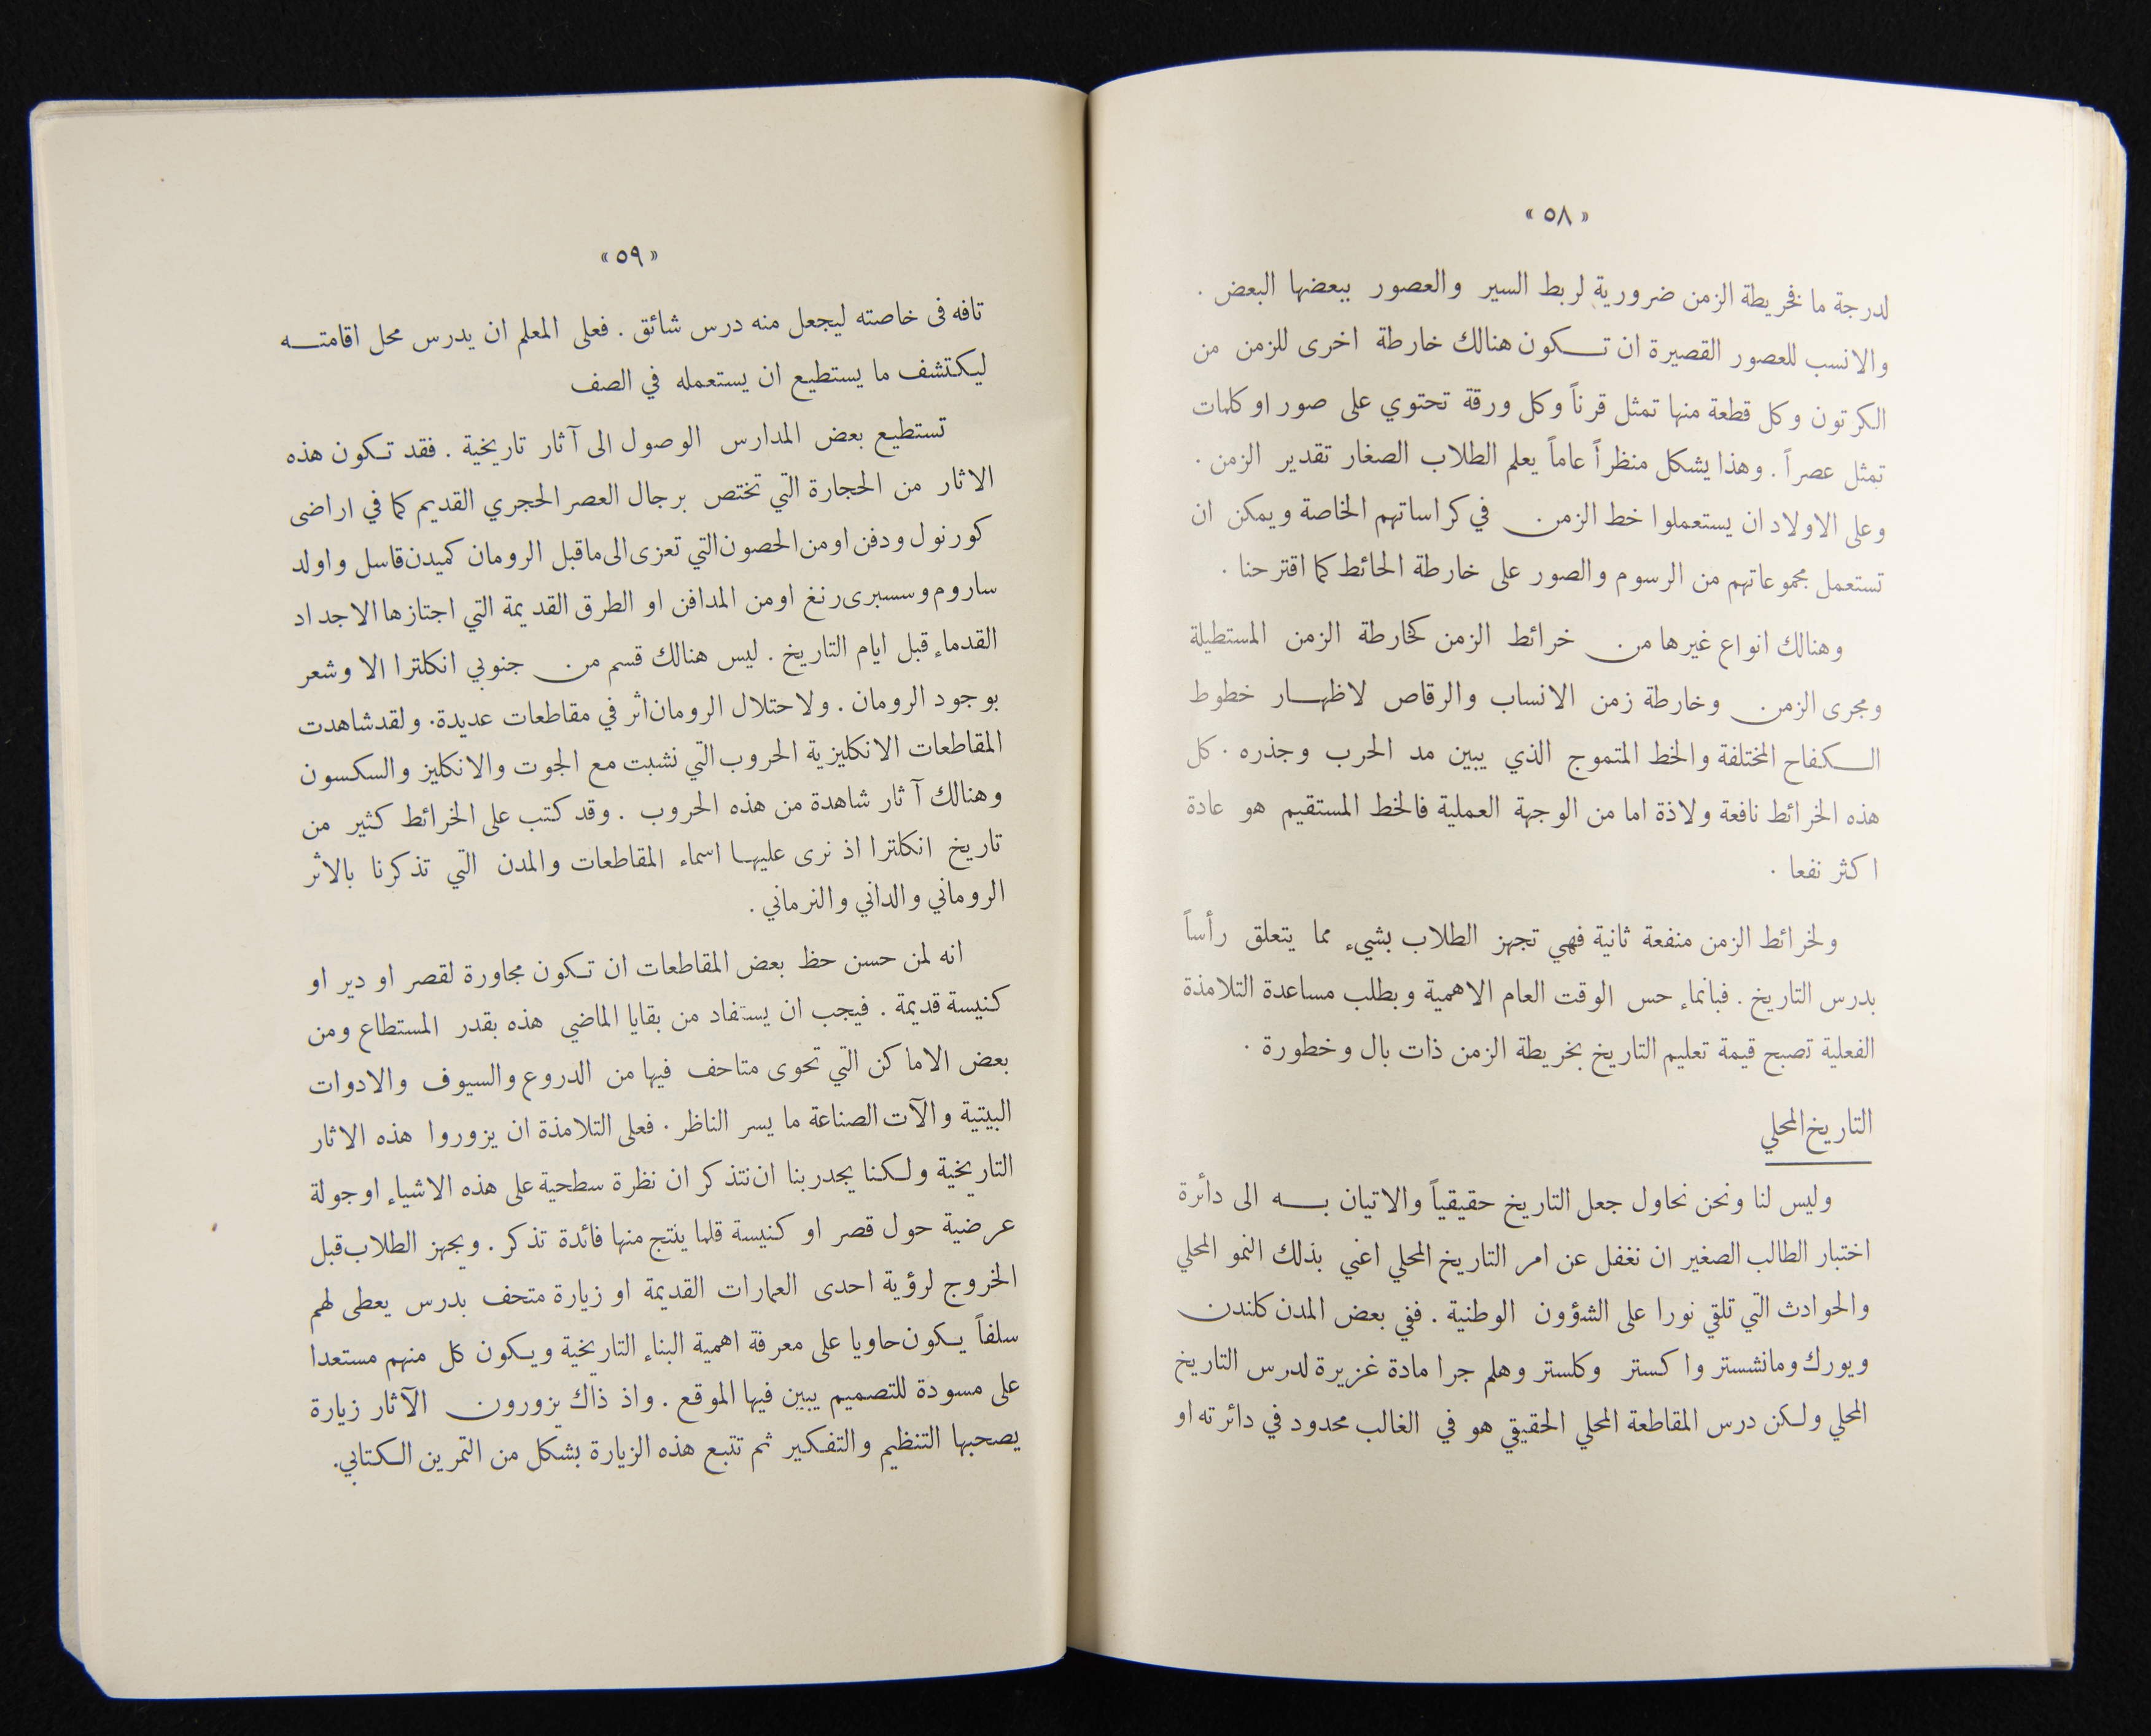 « ٥٨ »
لدرجة ما فخريطة الزمن ضرورية لربط السير والعصور ببعضها البعض .
والانسب للعصور القصيرة ان تكون هنالك خارطة اخرى للزمن من
الكرتون وكل قطعة منها تمثل قرناً وكل ورقة تحتوي على صور او كلمات
تمثل عصراً . وهذا يشكل منظراً عاماً يعلم الطلاب الصغار تقدير الزمن .
وعلى الاولاد ان يستعملوا خط الزمن في كراساتهم الخاصة ويمكن ان
تستعمل مجموعاتهم من الرسوم والصور على خارطة الحائط كما اقترحنا .
وهنالك انواع غيرها من خرائط الزمن كخارطة الزمن المستطيلة
ومجرى الزمن وخارطة زمن الانساب والرقاص لاظهار خطوط
الكفاح المختلفة والخط المتموج الذي يبين مد الحرب وجذره . كل
هذه الخرائط نافعة ولاذة اما من الوجهة العملية فالخط المستقيم هو عادة
اكثر نفعا .
ولخرائط الزمن منفعة ثانية فهي تجهز الطلاب بشيء مما يتعلق رأساً
بدرس التاريخ . فبانماء حس الوقت العام الاهمية وبطلب مساعدة التلامذة
الفعلية تصبح قيمة تعليم التاريخ بخريطة الزمن ذات بال وخطورة .
التاريخ المحلي
وليس لنا ونحن نحاول جعل التاريخ حقيقياً والاتيان به الى دائرة
اختبار الطالب الصغير ان نغفل عن امر التاريخ المحلي اعني بذلك النمو المحلي
والحوادث التي تلقي نورا على الشؤون الوطنية . ففي بعض المدن كلندن
ويورك ومانشستر واكستر وكلستر وهلم جرا مادة غزيرة لدرس التاريخ
المحلي ولكن درس المقاطعة المحلي الحقيقي هو في الغالب محدود في دائرته او
« ٥٩ »
تافه فى خاصته ليجعل منه درس شائق . فعلى المعلم ان يدرس محل اقامته
ليكتشف ما يستطيع ان يستعمله في الصف
تستطيع بعض المدارس الوصول الى آثار تاريخية . فقد تكون هذه
الاثار من الحجارة التي تختص برجال العصر الحجري القديم كما في اراضى
كورنول ودفن او من الحصون التي تعزى الى ما قبل الرومان كميدن قاسل واولد
ساروم وسسبرى رنغ او من المدافن او الطرق القديمة التي اجتازها الاجداد
القدماء قبل ايام التاريخ . ليس هنالك قسم من جنوبي انكلترا الا وشعر
بوجود الرومان . ولاحتلال الرومان اثر في مقاطعات عديدة . ولقد شاهدت
المقاطعات الانكليزية الحروب التي نشبت مع الجوت والانكليز والسكسون
وهنالك آثار شاهدة من هذه الحروب . وقد كتب على الخرائط كثير من
تاريخ انكلترا اذ نرى عليها اسماء المقاطعات والمدن التي تذكرنا بالاثر
الروماني والداني والنرماني .
انه لمن حسن حظ بعض المقاطعات ان تكون مجاورة لقصر او دير او
كنيسة قديمة . فيجب ان يستفاد من بقايا الماضي هذه بقدر المستطاع ومن
بعض الاماكن التي تحوى متاحف فيها من الدروع والسيوف والادوات
البيتية والآت الصناعة ما يسر الناظر . فعلى التلامذة ان يزوروا هذه الاثار
التاريخية ولكنا يجدر بنا ان نتذكر ان نظرة سطحية على هذه الاشياء او جولة
عرضية حول قصر او كنيسة قلما ينتج منها فائدة تذكر . ويجهز الطلاب قبل
الخروج لرؤية احدى العمارات القديمة او زيارة متحف بدرس يعطى لهم
سلفاً يكون حاويا على معرفة اهمية البناء التاريخية ويكون كل منهم مستعدا
على مسودة للتصميم يبين فيها الموقع . واذ ذاك يزورون الآثار زيارة
يصحبها التنظيم والتفكير ثم تتبع هذه الزيارة بشكل من التمرين الكتابي.